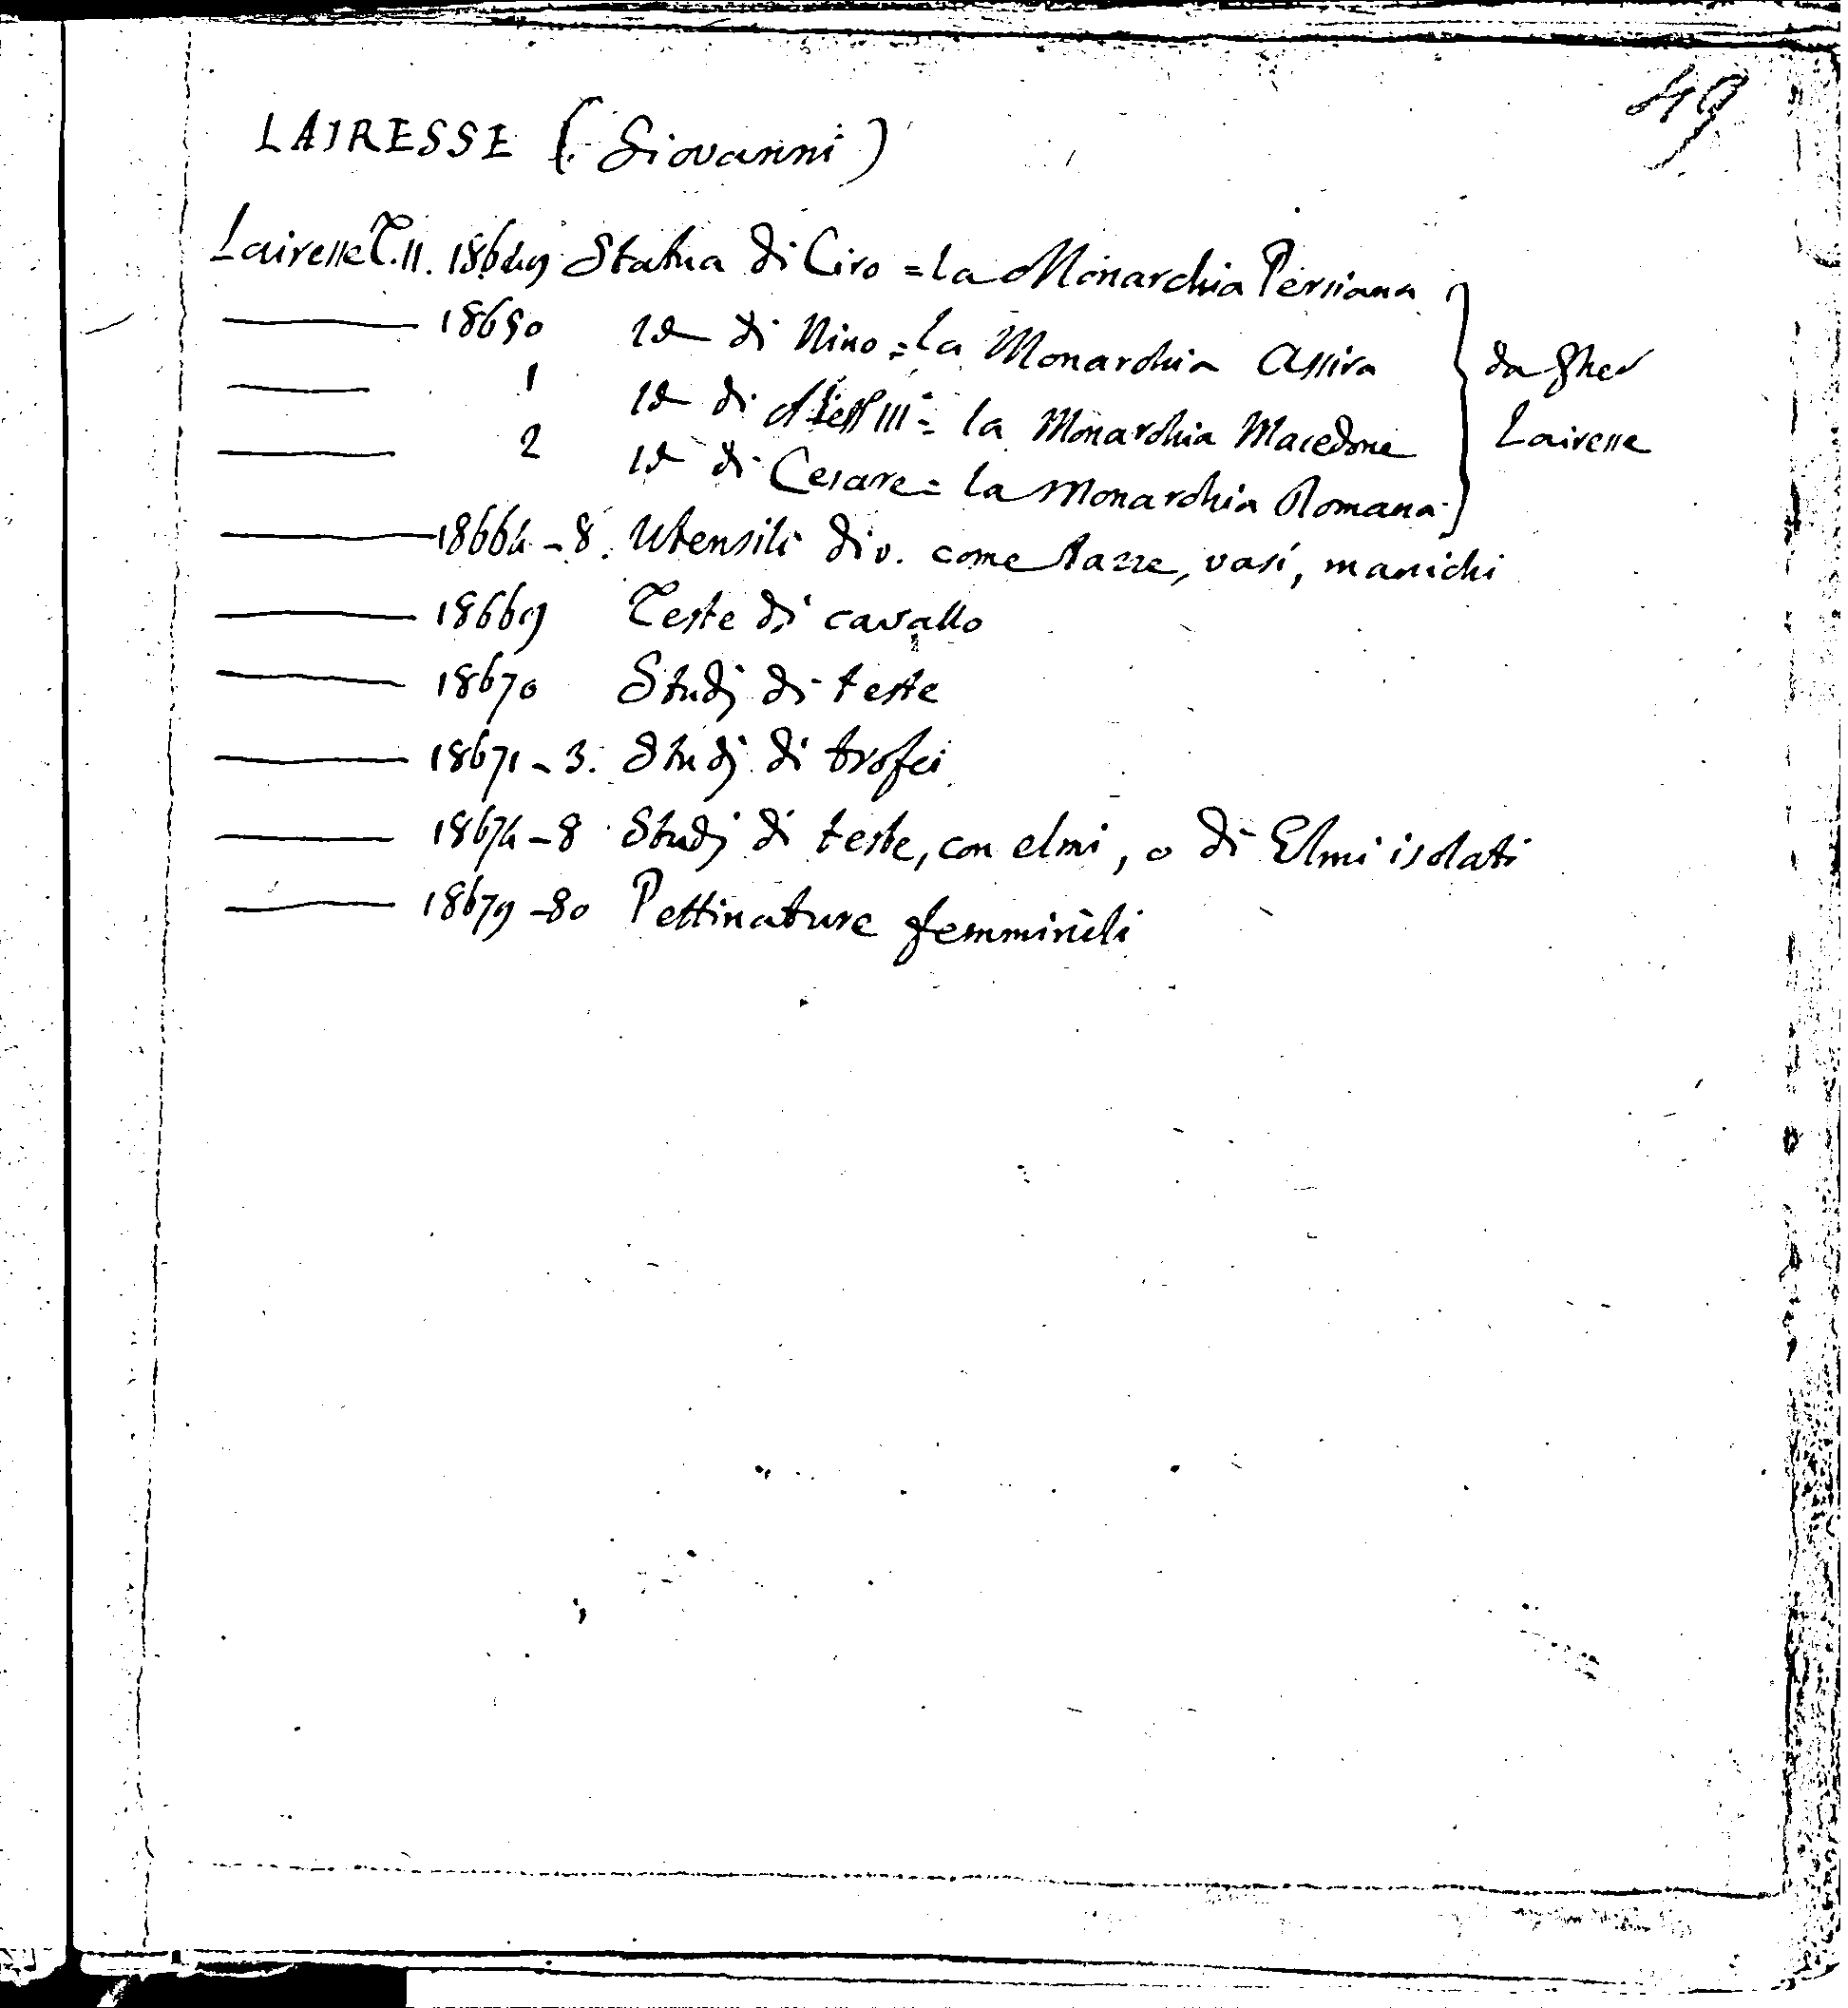 49
LAIRESSE (Giovanni)
Lairesse T. II. 18649 Statua di Ciro = la Monarchia Persiana
18650 Id di Nino = la Monarchia Assira
1 Id di Aless III = la Monarchia Macedone
2 Id di Cesare = la Monarchia Romana
da Gher Lairesse
18664-8. Utensili div. come tazze, vasi, manichi
18669 Teste di cavallo
18670 Studj di teste
18671-3. Studj di trofei
18674-8 Studj di teste, con elmi, o di Elmi isolati
18679-80 Pettinature femminili